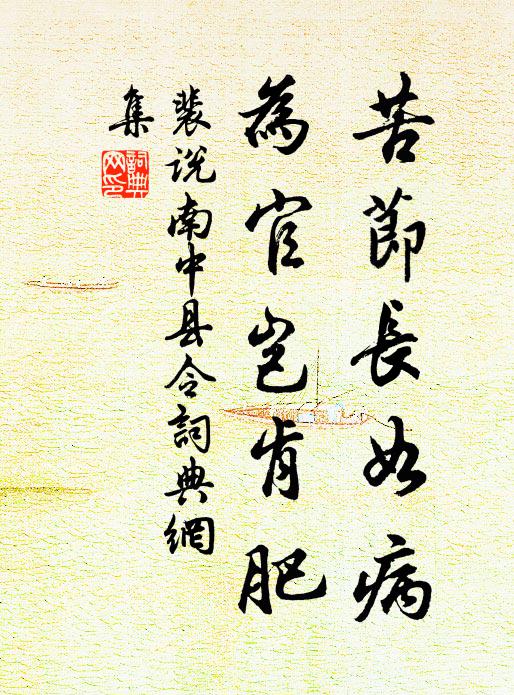 苦節長如病
為官豈肯肥
裴说南中县令詞典網
集
詞典
网印